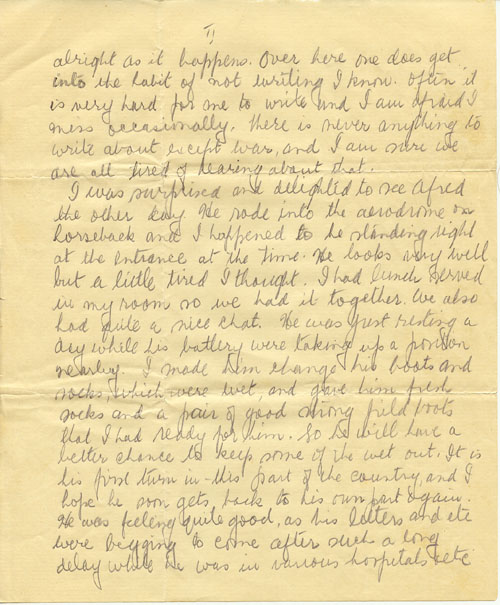 II
alright as it happens. Over here one does get
into the habit of not writing I know. Often it
is very hard for me to write and I am afraid I
miss occasionally. There is never anything to
write about except war, and I am sure we
are all tired of hearing about that.
I was surprised and delighted to see Afred
the other day. He rode into the aerodrome on
horseback and I happened to be standing right
at the entrance at the time. He looks very well
but a little tired I thought. I had lunch served
in my room so we had it together. We also
had quite a nice chat. He was just resting a
day while his battery were taking up a position
nearby. I made him change his boots and
socks, which were wet, and gave him fresh
socks and a pair of good strong field boots
that I had ready for him. So he will have a
better chance to keep some of the wet out. It is
his first turn in this part of the country, and I
hope he soon gets back to his own part again.
He was feeling quite good, as his letters and etc
were begging to come after such a long
delay while he was in various hospitals etc